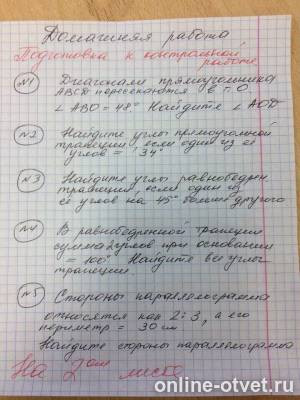 Домашняя работа
Подготовка к контрольной
работе
№1 Диагонали прямоугольника
ABCD пересекаются в т.О.
∠ABO = 48° Найдите ∠AOD
№2 Найдите углы прямоугольной
трапеции, если один из её
углов = 34°
№3 Найдите углы равнобедрен.
трапеции, если один из
её углов на 45° больше другого
№4 В равнобедренной трапеции
сумма 2 углов при основании
= 100° Найдите все углы
трапеции.
№5 Стороны параллелограмма
относятся как 2:3, а его
периметр = 30 см
Найдите стороны параллелограмма
На 2ом листе
online-otvet.ru